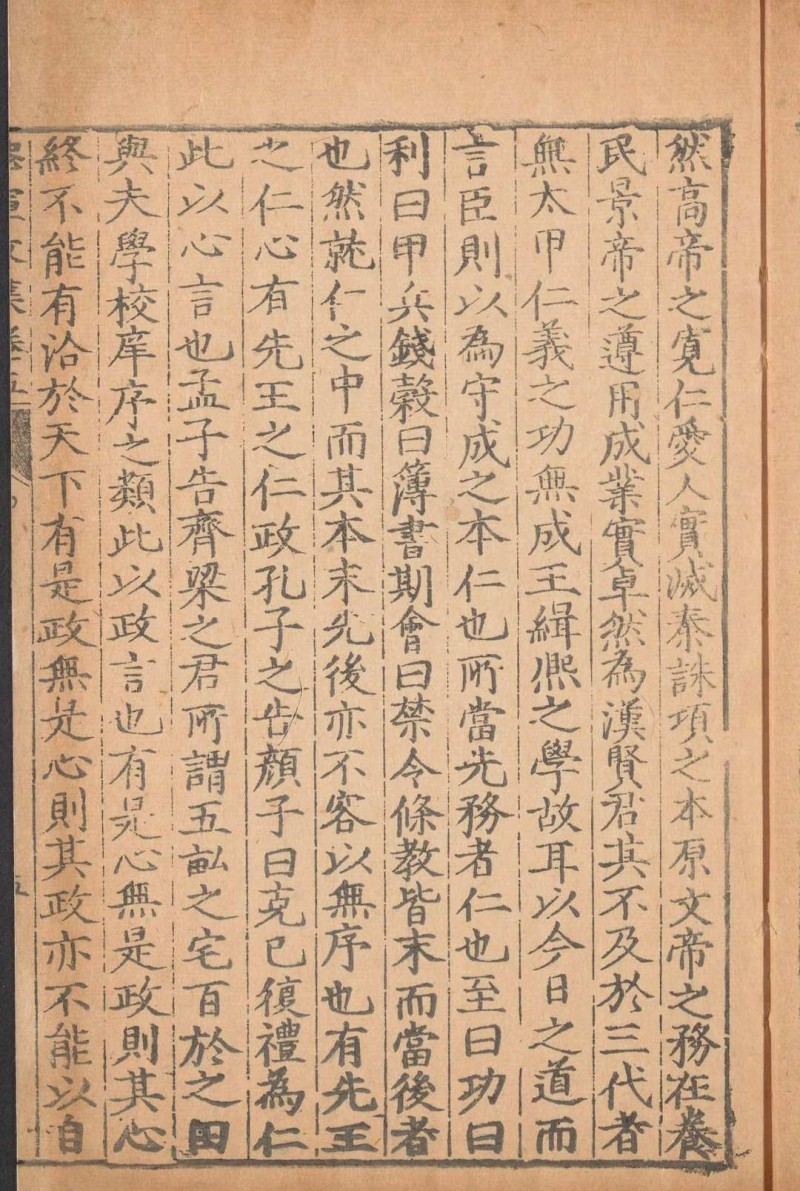 然高帝之寛仁愛人實滅秦誅項之本原文帝之務在養
民景帝之遵用成業實卓然為漢賢君其不及於三代者
無太甲仁義之功無成王緝熙之學故耳以今日之道而
言臣則以為守成之本仁也所當先務者仁也至曰功曰
利曰甲兵錢榖曰簿書期會曰禁令條教皆末而當後者
也然就仁之中而其本末先後亦不容以無序也有先王
之仁心有先王之仁政孔子之告顔子曰克已復禮為仁
此以心言也孟子告齊梁之君所謂五畝之宅百於之田
與夫學校庠序之類此以政言也有是心無是政則其心
終不能有洽於天下有是政無是心則其政亦不能以自